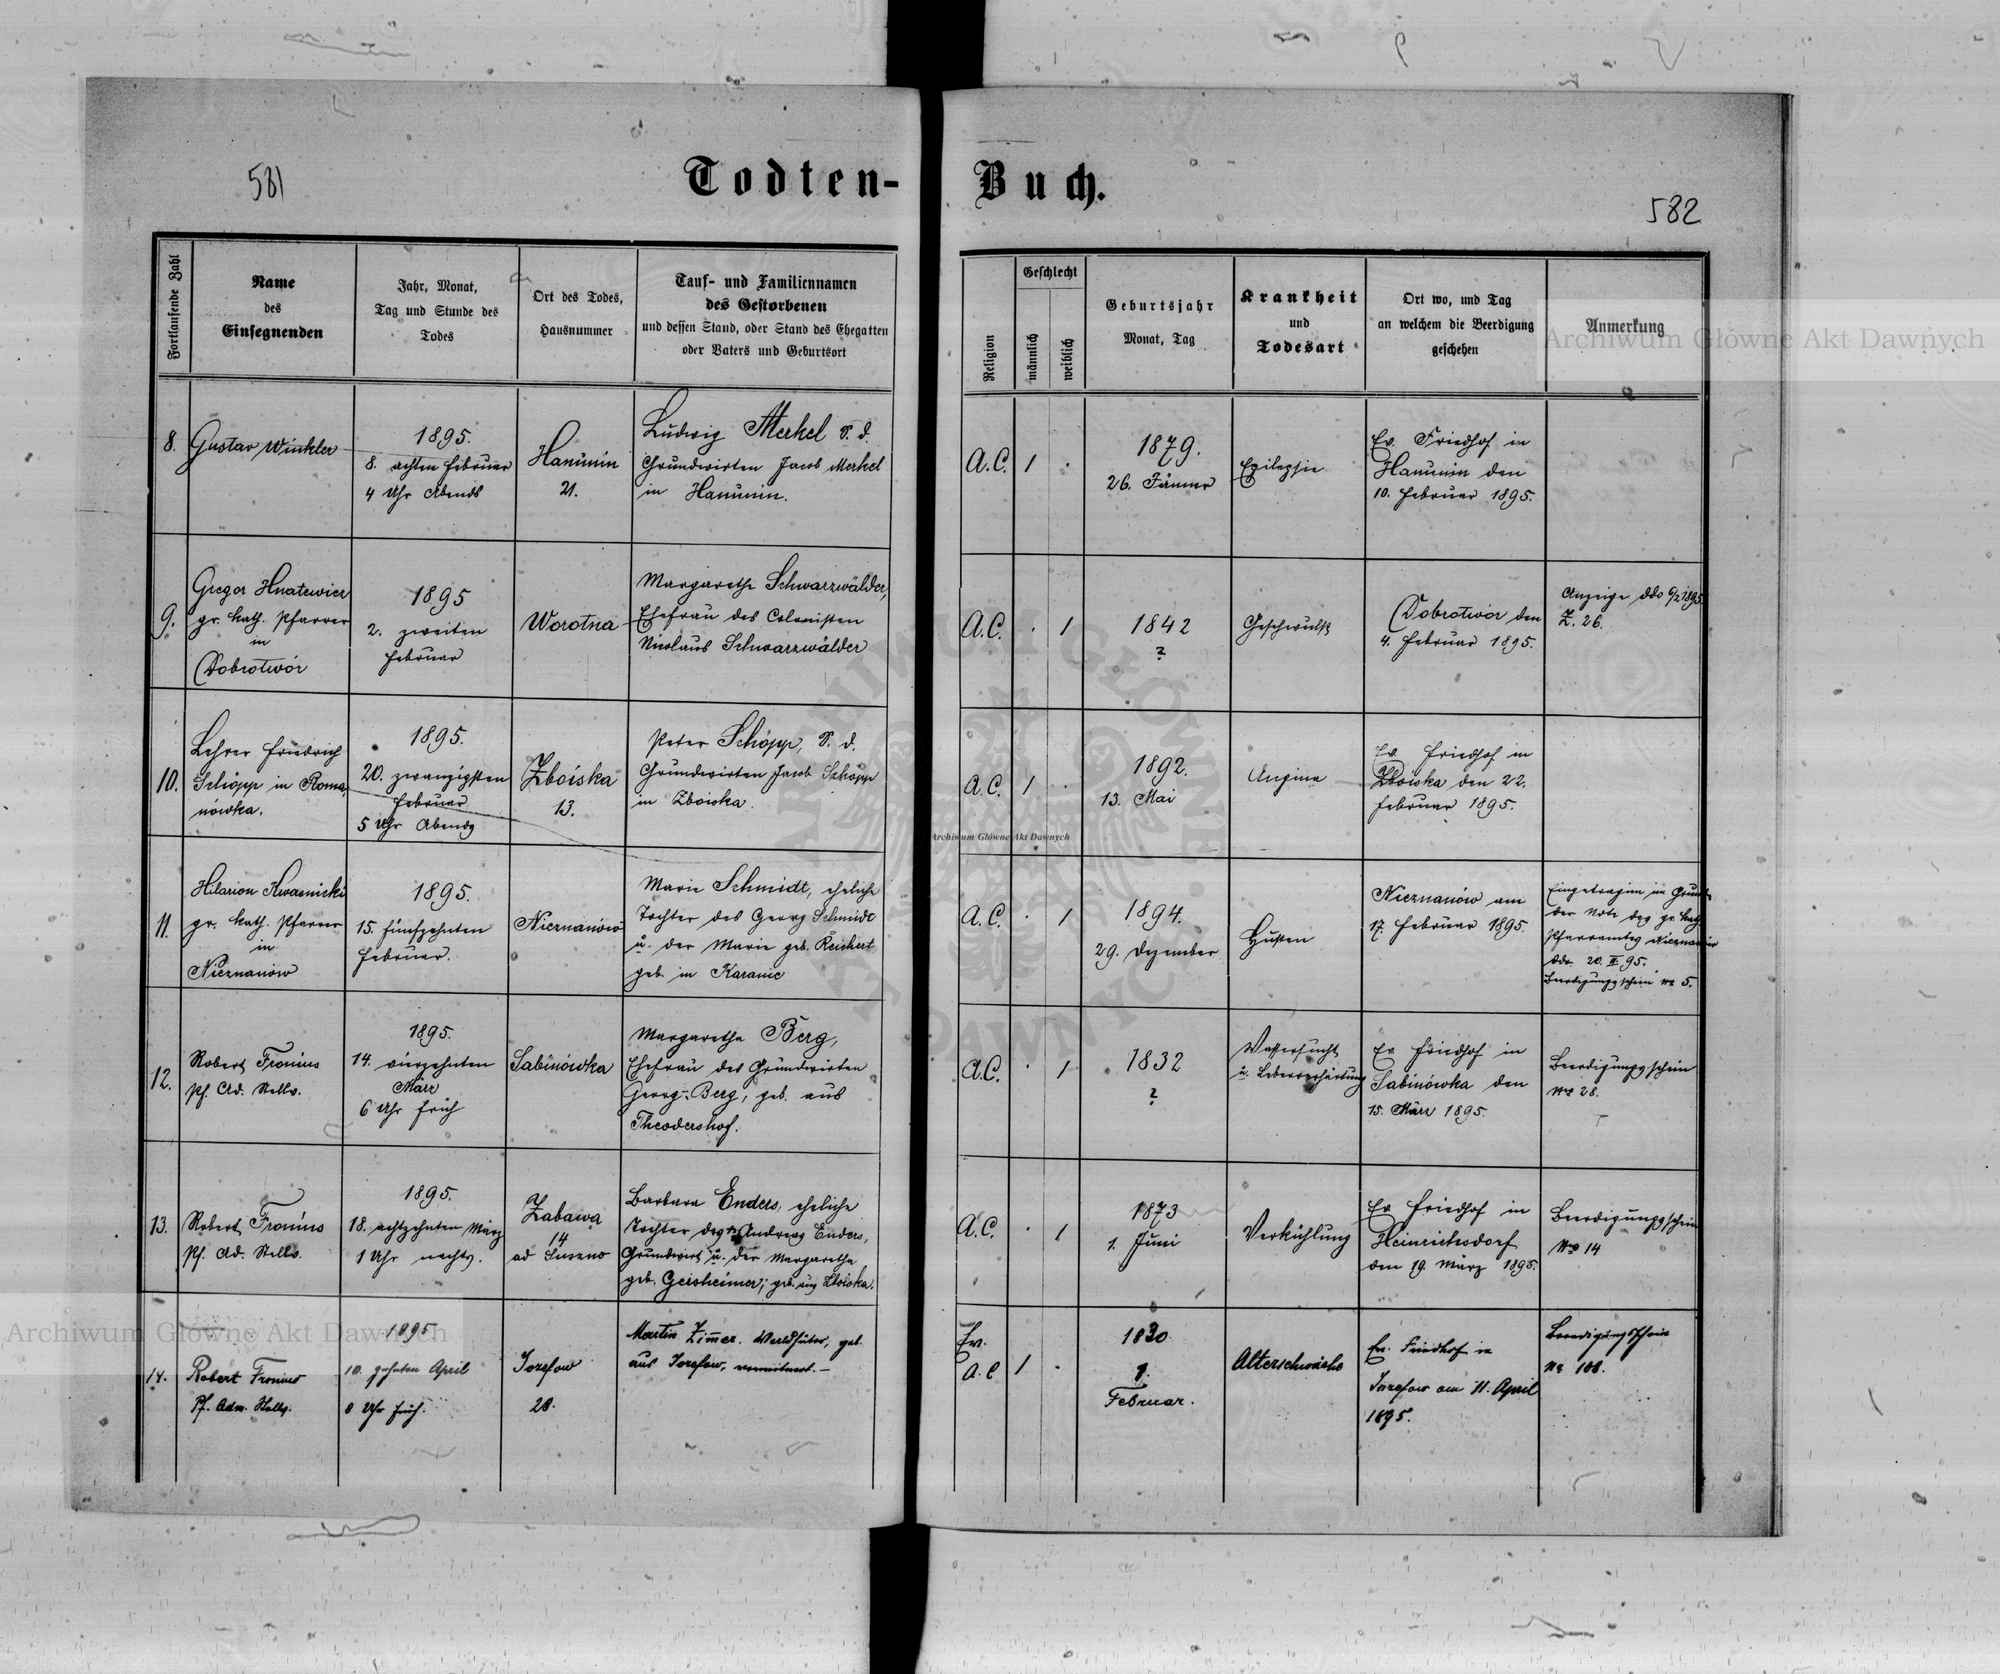 581
Todten-
Buch.
582
Fortlaufende Zahl
Name
des
Einsegnenden
Jahr, Monat,
Tag und Stunde des
Todes
Ort des Todes,
Hausnummer
Tauf- und Familiennamen
des Gestorbenen
und dessen Stand, oder Stand des Ehegatten
oder Vaters und Geburtsort
Religion
Geschlecht
männlich
weiblich
Geburtsjahr
Monat, Tag
Krankheit
und
Todesart
Ort wo, und Tag
an welchem die Beerdigung
geschehen
Anmerkung
Archiwum Główne Akt Dawnych
8.
Gustav Winkler
1895.
8. achten Februar
4 Uhr Abends
Hanunin
21.
Ludwig Merkel S. d.
Grundwirten Jacob Merkel
in Hanunin.
A.C. 1 .
1879.
26. Jänner
Epilepsie
Ev. Friedhof in
Hanunin den
10. Februar 1895.
9.
Gregor Hnatewicz
gr. kath. Pfarrer
in
Dobrotwór
1895
2. zweiten
Februar
Worotna
Margarethe Schwarzwälder,
Ehefrau des Colonisten
Nicolaus Schwarzwälder
A.C. . 1
1842
?
Geschwulst
Dobrotwór den
4. Februar 1895.
Anzeige ddo 6/2 1895
Z. 26.
10.
Lehrer Friedrich
Schöpp in Roma-
nówka.
1895.
20. zwanzigsten
Februar
5 Uhr Abends
Zboiska
13.
Peter Schöpp, S. d.
Grundwirten Jacob Schöpp
in Zboiska.
A.C. 1 .
1892.
13. Mai
Angina
Ev. Friedhof in
Zboiska den 22.
Februar 1895.
Archiwum Główne Akt Dawnych
11.
Hilarion Kwasnicki
gr. kath. Pfarrer
in
Nieznanów
1895.
15. fünfzehnten
Februar.
Nieznanów
Marie Schmidt, eheliche
Tochter des Georg Schmidt
u. der Marie geb. Reichert
geb. in Karanie
A.C. . 1
1894.
29. Dezember
Husten
Nieznanów am
17. Februar 1895.
Eingetragen im Grunde
der Note des gr. kath.
Pfarramtes Nieznanów
ddo 20. II. 95.
Beerdigungsschein No 5.
12.
Robert Fronius
Pf. Ad. Stellv.
1895.
14. vierzehnten
März
6 Uhr früh
Sabinówka
Margaretha Berg,
Ehefrau des Grundwirten
Georg Berg, geb. aus
Theodershof.
A.C. . 1
1832
?
Wassersucht
u. Leberverhärtung
Ev. Friedhof in
Sabinówka den
15. März 1895.
Beerdigungsschein
No 28.
13.
Robert Fronius
Pf. Ad. Stellv.
1895.
18. achtzehnten März
1 Uhr nachts.
Zabawa
14
ad Suszno
Barbara Enders, eheliche
Tochter des Andreas Enders,
Grundwirt u. der Margaretha
geb. Geisheimer; geb. aus Zboiska.
A.C. . 1
1873
1. Juni
Verkühlung
Ev. Friedhof in
Heinrichsdorf
den 19. März 1895.
Beerdigungsschein
No 14
14.
Robert Fronius
Pf. Adm. Stellv.
1895
10. zehnten April
8 Uhr früh.
Jozefow
28.
Martin Zimer. Waldhüter, geb.
aus Jozefow, verwitwet.—
Ev.
A.C 1 .
1830
1.
Februar.
Altersschwäche
Ev. Friedhof in
Jozefow am 11. April
1895.
Beerdigungsschein
No 108.
Archiwum Główne Akt Dawnych
ARCHIWUM GŁÓWNE AKT DAWNYCH